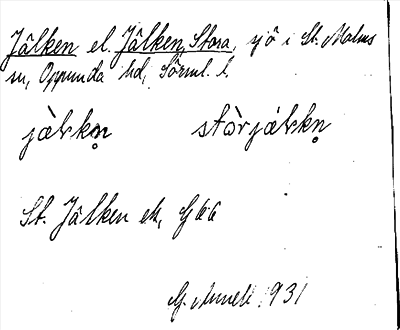 Jälken el. Jälken, Stora, sjö i St. Malms
sn, Oppunda hd, Sörml. l.
jàlskn̥ stòrjàlskn̥
St. Jälken ek, G66
G. 1931